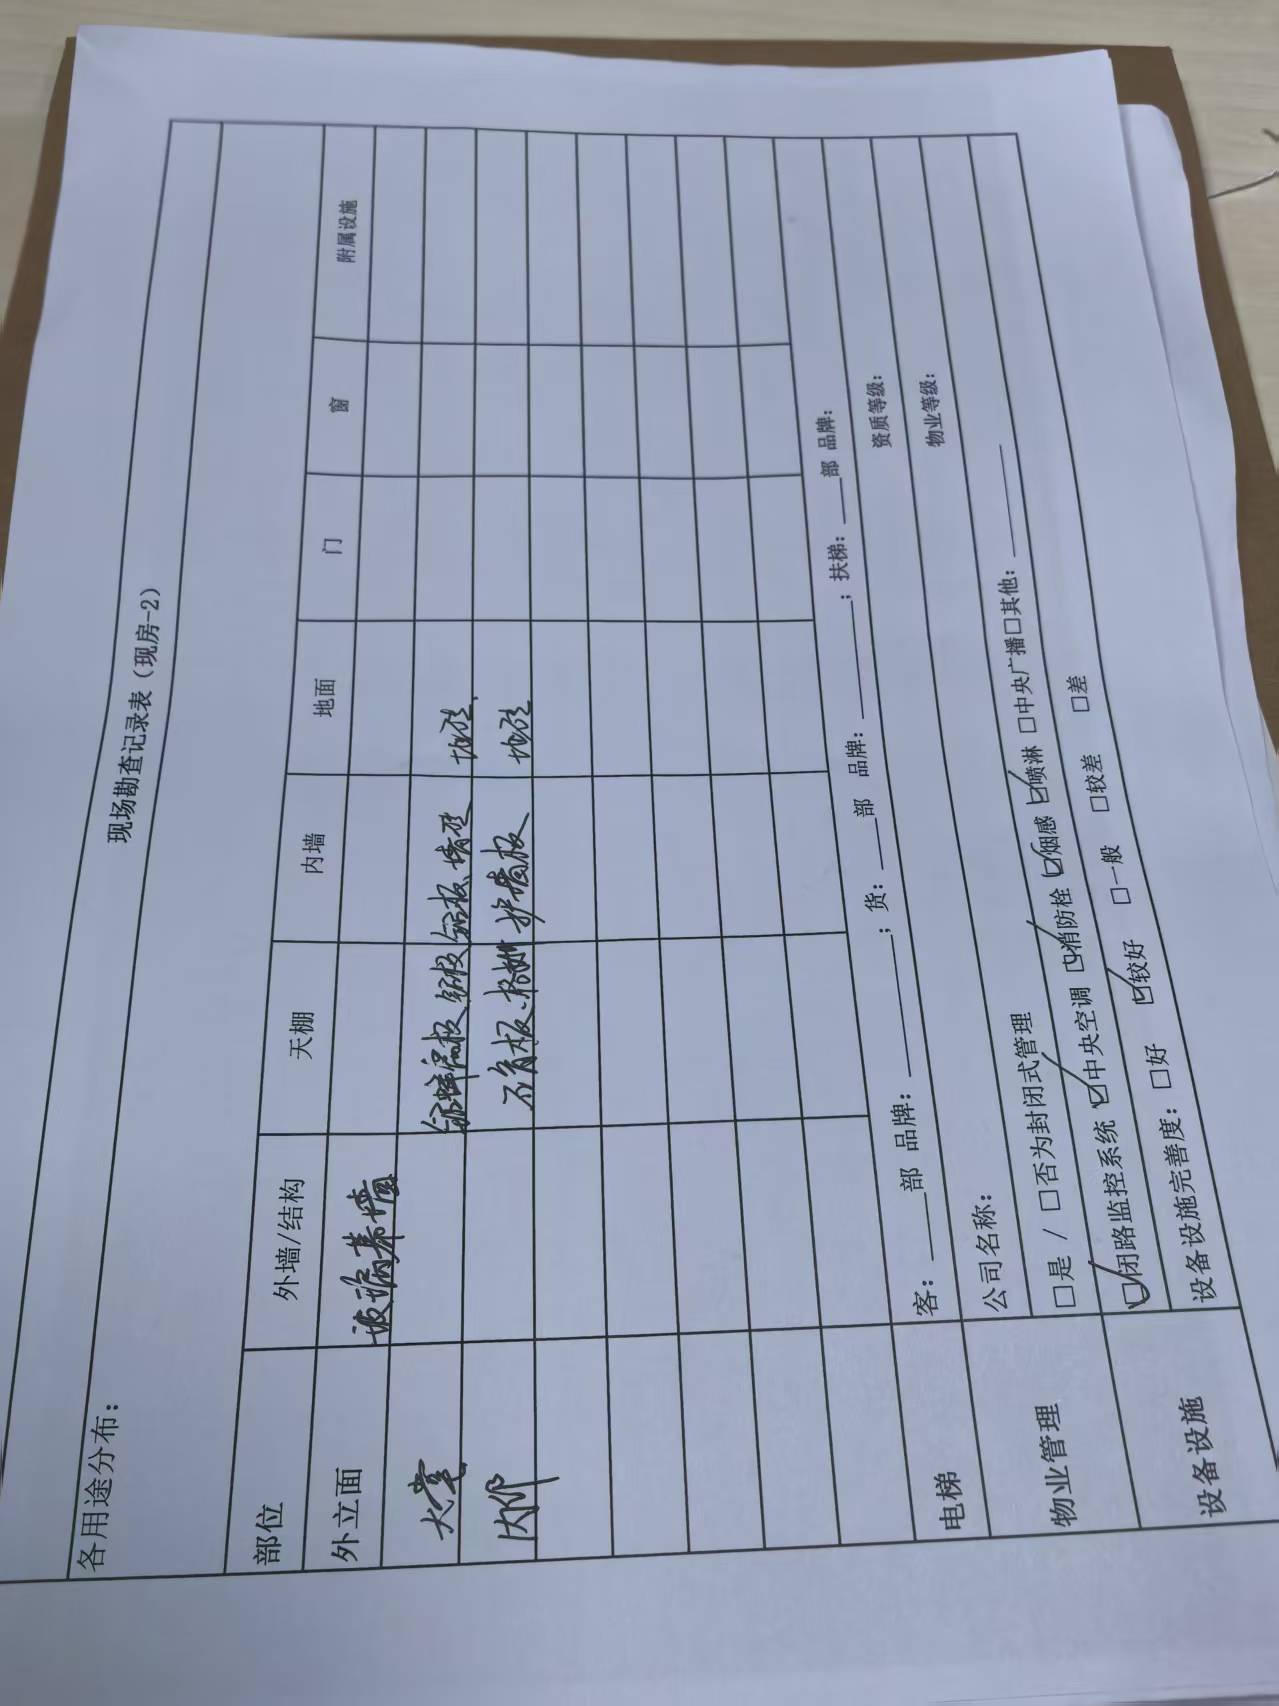 现场勘查记录表（现房-2）
各用途分布：
部位 外墙/结构 天棚 内墙 地面 门 窗 附属设施
外立面 玻璃幕墙
大堂 铝板、墙砖 地砖
内部 石膏板、格栅 护墙板 地砖
电梯 客：____部 品牌：________；货：____部 品牌：________；扶梯：____部 品牌：
物业管理 公司名称： 资质等级：
□是 / □否为封闭式管理 物业等级：
设备设施 ☑闭路监控系统 ☑中央空调 ☑消防栓 ☑烟感 ☑喷淋 □中央广播□其他：________
设备设施完善度： □好 ☑较好 □一般 □较差 □差